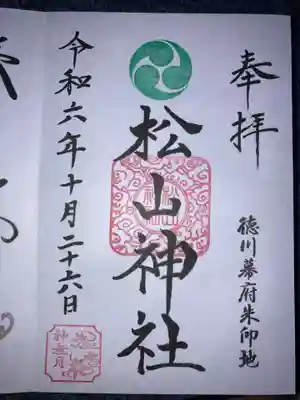 奉拝
徳川幕府朱印地
松山神社
令和六年十月二十六日
神無月